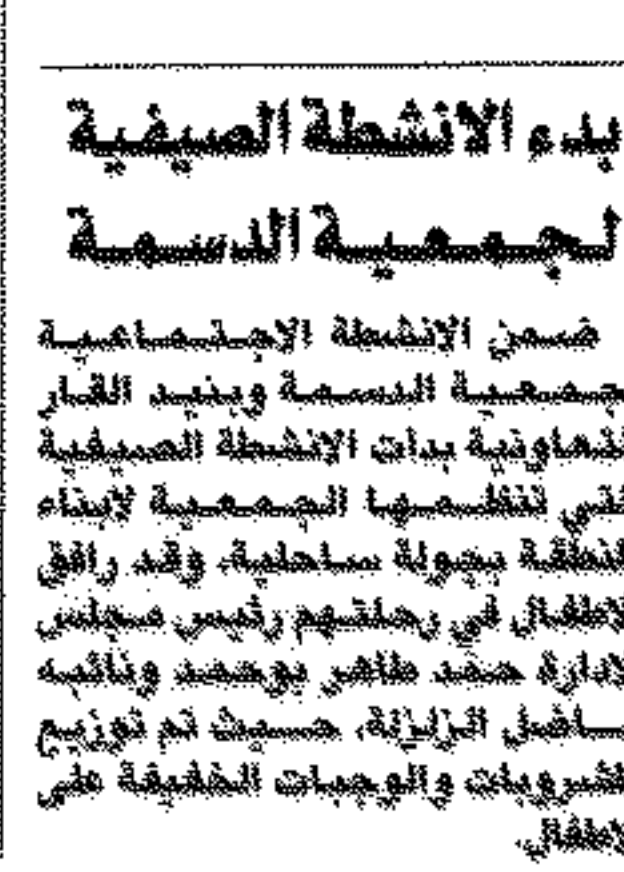 بدء الانشطة الصيفية
لجمعية الدسمة
ضمن الانشطة الاجتماعية
جمعية الدسمة وبنيد القار
لتعاونية بدأت الانشطة الصيفية
لتي تنظمها الجمعية لابناء
لنطقة بجولة ساحلية، وقد رافق
لاطفال في رحلتهم رئيس مجلس
لادارة حمد طاهر بوحمد ونائبه
الزلزلة، حيث تم توزيع
لشروبات والوجبات الخفيفة على
لاطفال.